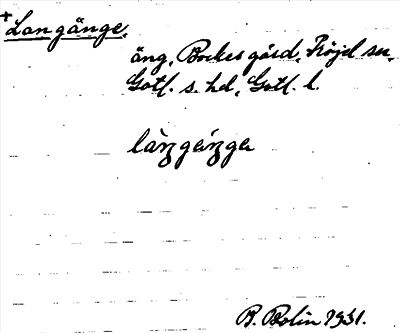 +
Langänge,
äng, Bockes gård, Fröjel sn,
Gotl. s. hd, Gotl. l.
B. Bolin 1931.